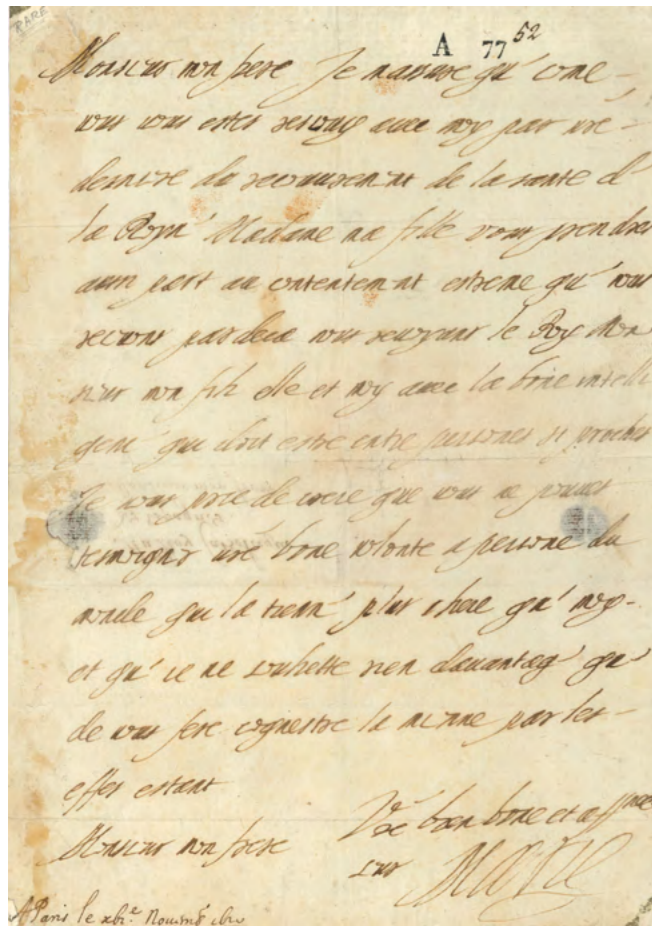 RARE
A 77 52
Monsieur mon frere Je massure qu' come
vous vous estes resiouy avec moy par vre
derniere du recouurem̄nt de la sante d'
la Royn' Madame ma fille vous prendres
aussi part au contentem̄nt estreme qu' nous
recevons pardeca nous
le Roy Mon
sieur mon filz elle et moy avec la bone intelli
genc' qui doit estre entre persones si proches
Je vous prie de croire que vous ne pouves
temoigner vre bone volonte a persone du
monde qui la tienn' plus chere qu' moy
et qu' ie ne souhette rien davantag' qu'
de vous fere cognestre la mienne par les
effes estant
Monsieur mon frere
Vre bien bone et
seur
Marie
A Paris le